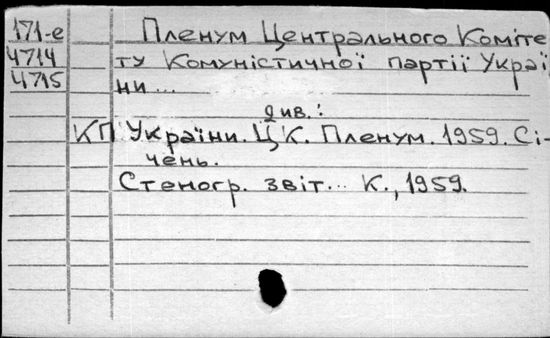 171-е Пленум Центрального Коміте
4714 ту Комуністичної партії Украї
4715 ни...
див.:
КП України. ЦК. Пленум. 1959. Сі-
чень.
Стеногр. звіт... К., 1959.